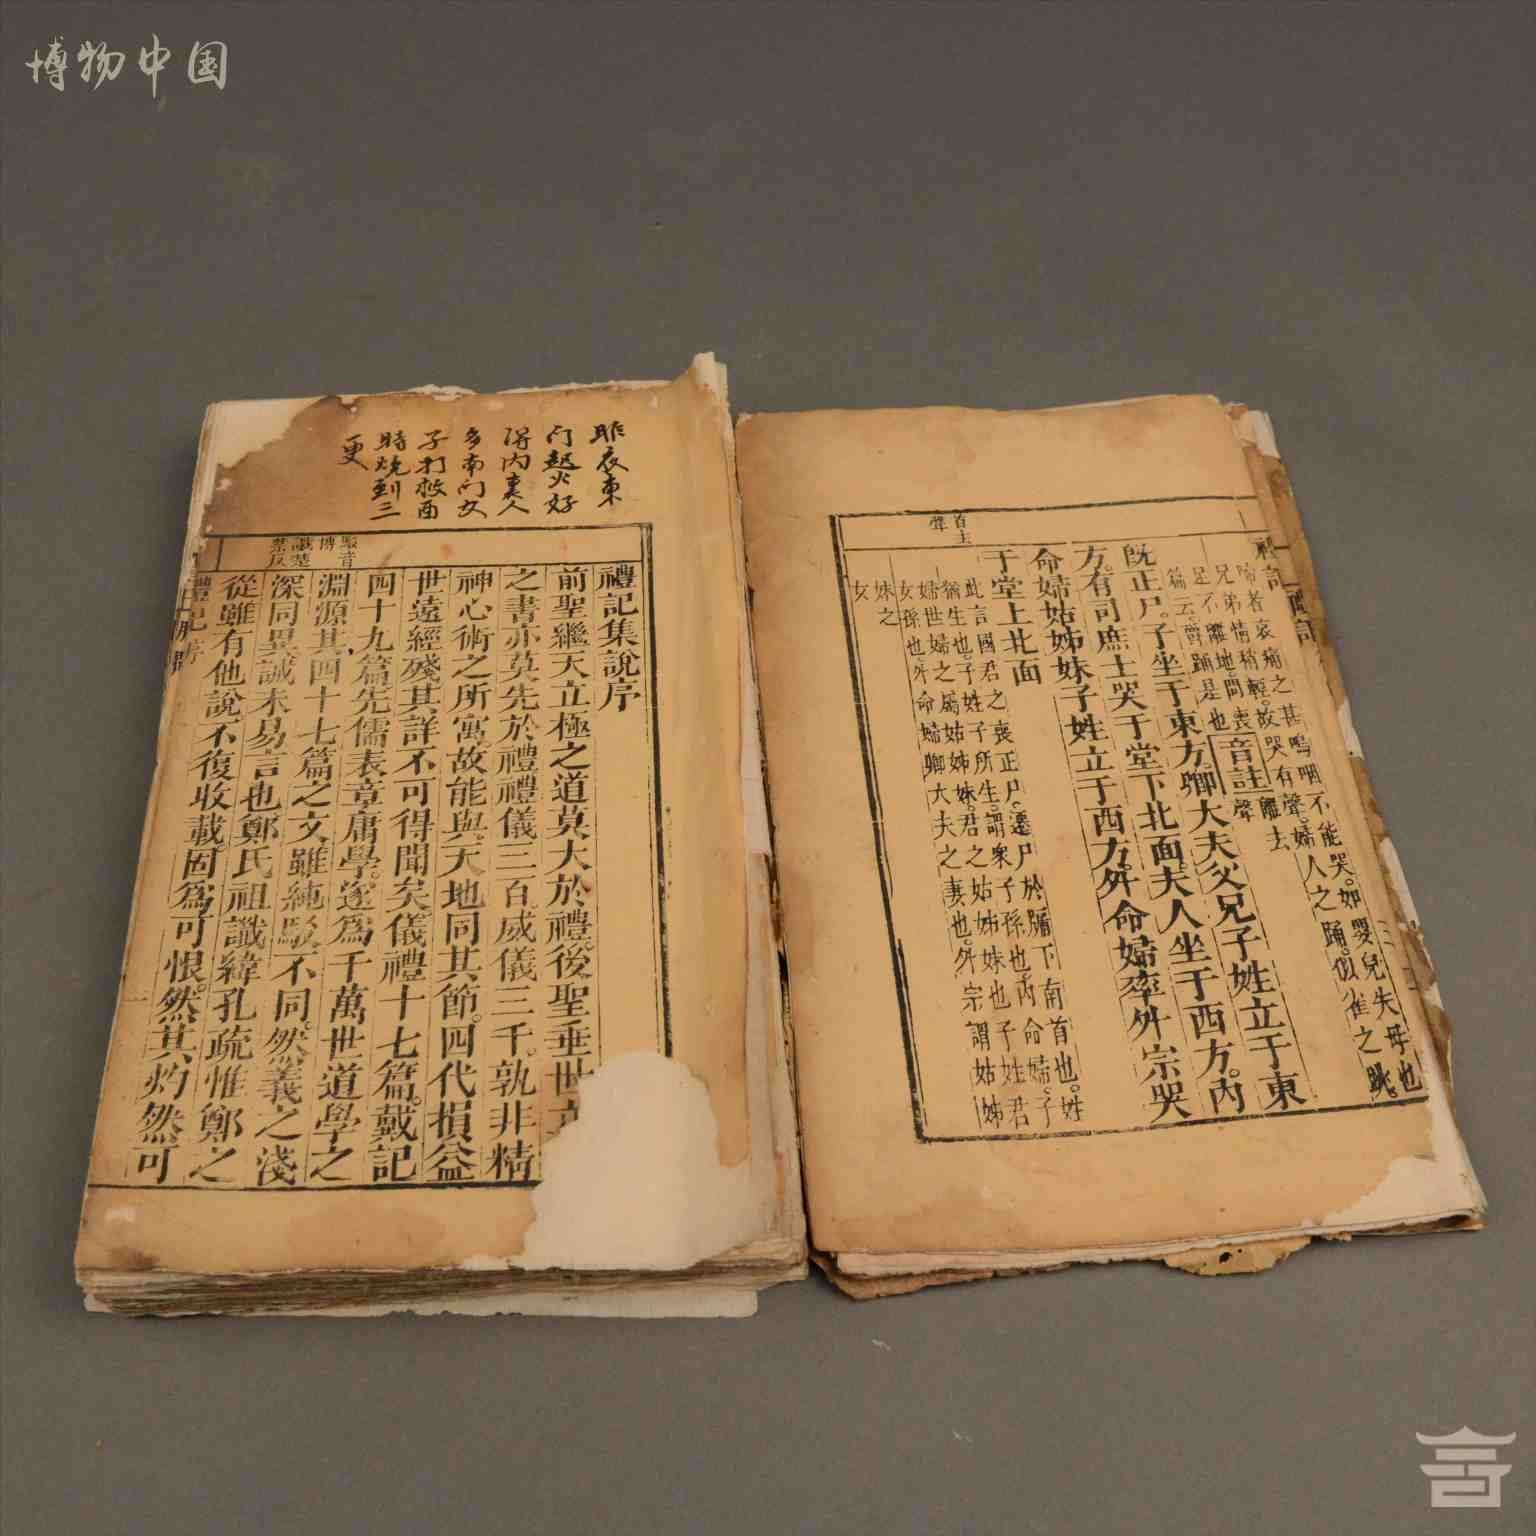 博物中国
首上
聲
啼者哀痛之甚嗚咽不能哭如嬰兒失母也
兄弟情稍輕故哭有聲婦人之踊似雀之跳
足不離地問喪
篇云爵踊是也
音註
離去
聲
既正尸子坐于東方卿大夫父兄子姓立于東
方有司庶士哭于堂下北面夫人坐于西方內
命婦姑姊妹子姓立于西方外命婦率外宗哭
于堂上北面
此言國君之喪正尸遷尸於牖下南首也姓
猶生也子姓子所生謂衆子孫也內命婦子
婦世婦之屬姑姊妹君之姑姊妹也子姓君
女孫也外命婦卿大夫之妻也外宗謂姑姊
妹之
女
昨夜東
门起火好
得内裏人
多南门女
子打救西
時燒到三
更
駁音
博
讖楚
禁反
禮記集說序
前聖繼天立極之道莫大於禮後聖垂世立
之書亦莫先於禮禮儀三百威儀三千孰非精
神心術之所寓故能與天地同其節四代損益
世遠經殘其詳不可得聞矣儀禮十七篇戴記
四十九篇先儒表章庸學遂爲千萬世道學之
淵源其四十七篇之文雖純駁不同然義之淺
深同異誠未易言也鄭氏祖讖緯孔疏惟鄭之
從雖有他說不復收載固爲可恨然其灼然可
禮記序